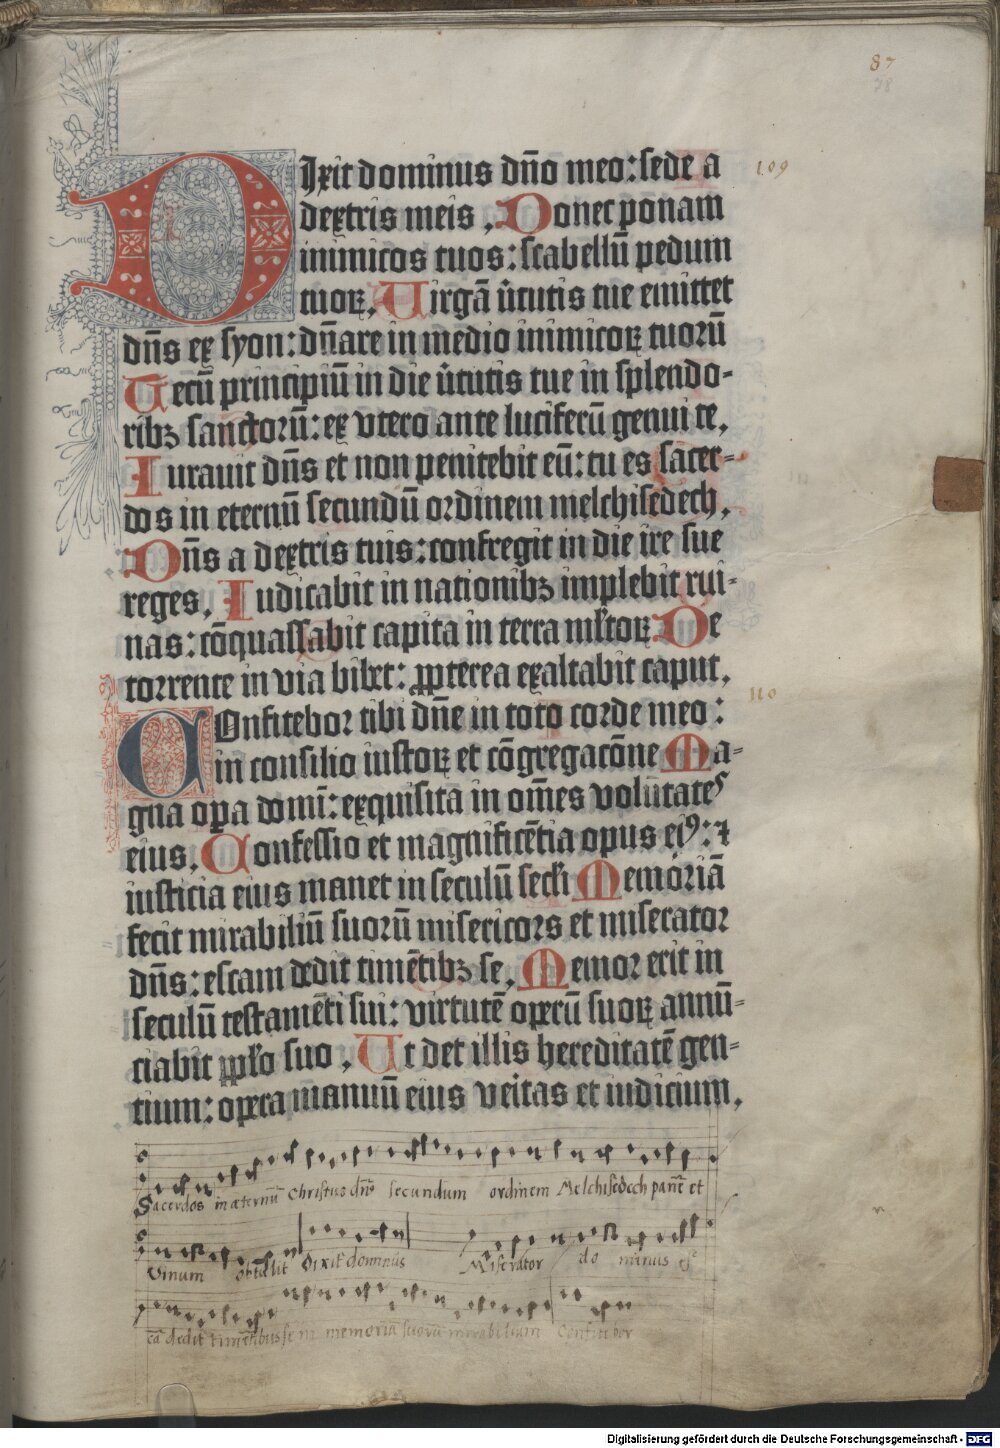 87
78
Dixit dominus dño meo: sede a
109
dextris meis. Donec ponam
inimicos tuos: scabellū pedum
tuoꝝ. Uirgā ùtutis tue emittet
dñs ex syon: dñare in medio inimicoꝝ tuorū
Tecū principiū in die ùtutis tue in splendo-
ribꝫ sanctorū: ex vtero ante luciferū genui te.
Iurauit dñs et non penitebit eū: tu es sacer-
dos in eternū secundū ordinem melchisedech.
Dñs a dextris tuis: confregit in die ire sue
reges. Iudicabit in nationibꝫ implebit rui-
nas: cōquassabit capita in terra ml̄toꝝ De
torrente in via bibet: ꝓpterea exaltabit caput.
110
Confitebor tibi dñe in toto corde meo:
in consilio iustoꝝ et cōgregacōne Ma-
gna oꝑa domī: exquisita in om̄es volūtates
eius. Confessio et magnificētia opus eiꝰ: ⁊
iusticia eius manet in seculū secl̄i Memoriā
fecit mirabiliū suorū misericors et miserator
dñs: escam dedit timētibꝫ se. Memor erit in
seculū testamēti sui: virtutē operū suoꝝ annū-
ciabit ꝓpl̄o suo. Ut det illis hereditatē gen-
tium: opera manuū eius veitas et iudicium.
Sacerdos in æternū Christus dñs secundum ordinem Melchisedech panē et
Vinum obtulit Dixit dominus Miserator do minus es
cā dedit timentibus se in memoria suorū mirabilium Confitebor
Digitalisierung gefördert durch die Deutsche Forschungsgemeinschaft - DFG